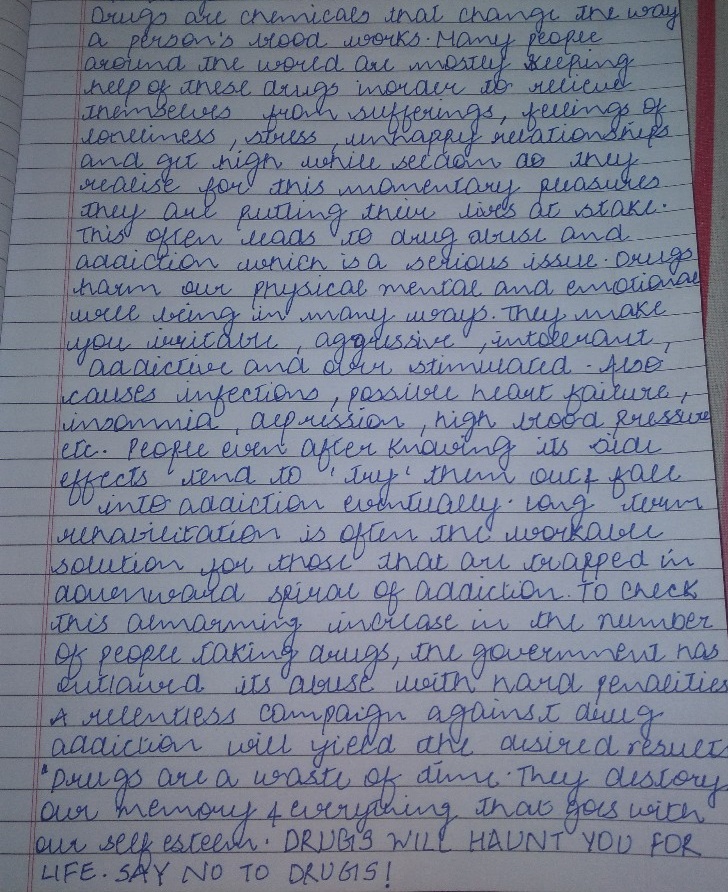 Drugs are chemicals that change the way
a person's mood works. Many people
around the world are mostly keeping
help of these drugs inorder to relieve
themselves from sufferings, feelings of
loneliness, stress, unhappy relationships
and get high while seldom do they
realise for this momentary pleasures
they are putting their lives at stake.
This often leads to drug abuse and
addiction which is a serious issue. Drugs
harm our physical mental and emotional
well being in many ways. They make
you irritable, aggressive, intolerant,
addictive and over stimulated. Also
causes infections, possible heart failure,
insomnia, depression, high blood pressure
etc. People even after knowing its side
effects tend to 'try' them out & fall
into addiction eventually. Long term
rehabilitation is often the workable
solution for those that are trapped in
downward spiral of addiction. To check
this alarming increase in the number
of people taking drugs, the government has
outlawed its abuse with hard penalities
A relentless campaign against drug
addiction will yield the desired results
"Drugs are a waste of time. They destory
our memory & everything that goes with
our self esteem. DRUGS WILL HAUNT YOU FOR
LIFE. SAY NO TO DRUGS!